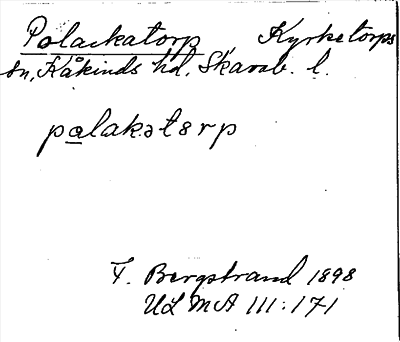 Polackatorp Kyrketorps
sn, Kåkinds hd, Skarab. l.
palakətɵrp
F. Bergstrand 1898
ULMA 111:171